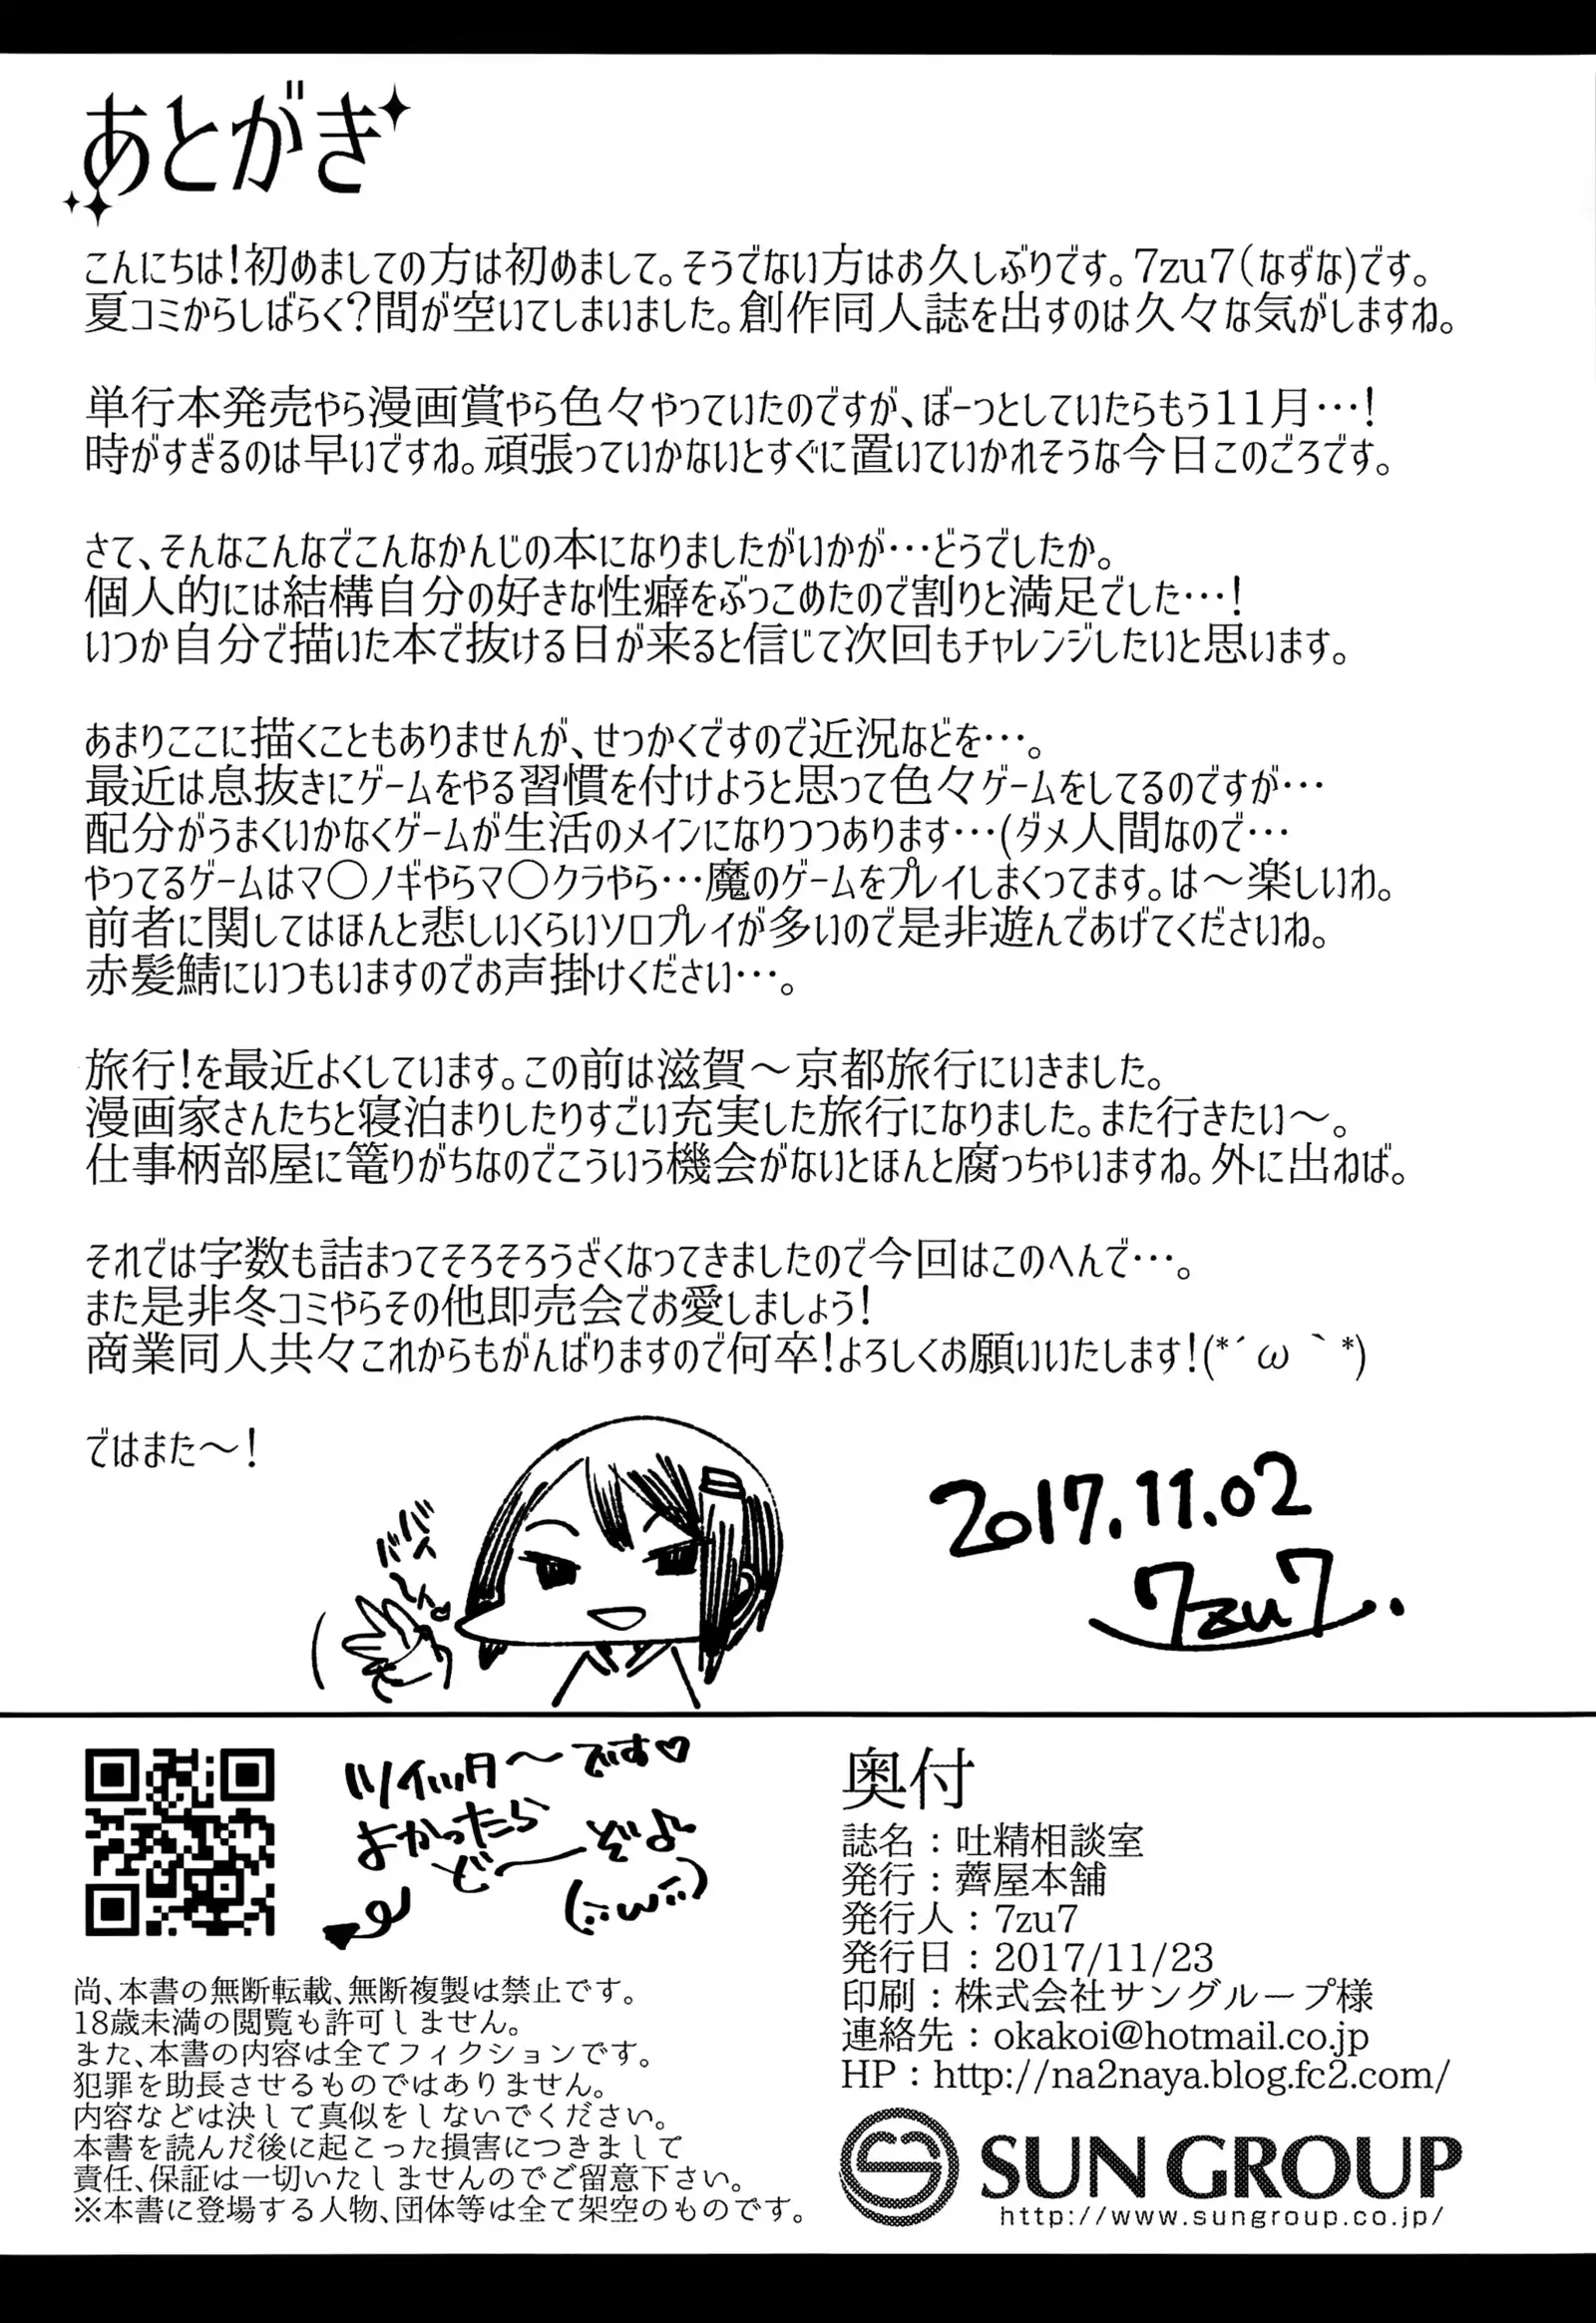 あとがき
こんにちは！初めましての方は初めまして。そうでない方はお久しぶりです。7zu7（なずな）です。
夏コミからしばらく？間が空いてしまいました。創作同人誌を出すのは久々な気がしますね。
単行本発売やら漫画賞やら色々やっていたのですが、ぼーっとしていたらもう11月…！
時がすぎるのは早いですね。頑張っていかないとすぐに置いていかれそうな今日このごろです。
さて、そんなこんなでこんなかんじの本になりましたがいかが…どうでしたか。
個人的には結構自分の好きな性癖をぶっこめたので割りと満足でした…！
いつか自分で描いた本で抜ける日が来ると信じて次回もチャレンジしたいと思います。
あまりここに描くこともありませんが、せっかくですので近況などを…。
最近は息抜きにゲームをやる習慣を付けようと思って色々ゲームをしてるのですが…
配分がうまくいかなくゲームが生活のメインになりつつあります…(ダメ人間なので…
やってるゲームはマ〇ノギやらマ〇クラやら…魔のゲームをプレイしまくってます。は～楽しいわ。
前者に関してはほんと悲しいくらいソロプレイが多いので是非遊んであげてくださいね。
赤髪鯖にいつもいますのでお声掛けください…。
旅行！を最近よくしています。この前は滋賀～京都旅行にいきました。
漫画家さんたちと寝泊まりしたりすごい充実した旅行になりました。また行きたい～。
仕事柄部屋に篭りがちなのでこういう機会がないとほんと腐っちゃいますね。外に出ねば。
それでは字数も詰まってそろそろうざくなってきましたので今回はこのへんで…。
また是非冬コミやらその他即売会でお愛しましょう！
商業同人共々これからもがんばりますので何卒！よろしくお願いいたします！(*´ω｀*)
ではまた～！
バイバ～イ♡
2017.11.02
7zu7.
ツイッタ～です♡
よかったら
ど～ぞ♪
(:･ω･:)
奥付
誌名：吐精相談室
発行：薺屋本舗
発行人：7zu7
発行日：2017/11/23
印刷：株式会社サングループ様
連絡先：okakoi@hotmail.co.jp
HP：http://na2naya.blog.fc2.com/
SUN GROUP
http://www.sungroup.co.jp/
尚、本書の無断転載、無断複製は禁止です。
18歳未満の閲覧も許可しません。
また、本書の内容は全てフィクションです。
犯罪を助長させるものではありません。
内容などは決して真似をしないでください。
本書を読んだ後に起こった損害につきまして
責任、保証は一切いたしませんのでご留意下さい。
※本書に登場する人物、団体等は全て架空のものです。